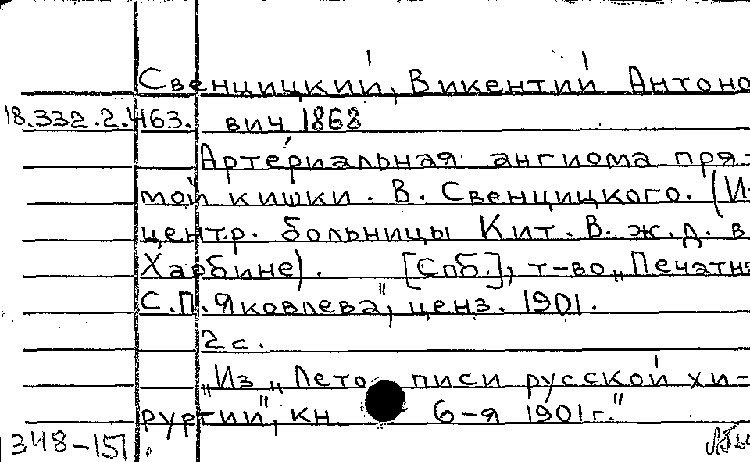 Свенцицкий, Викентий Антоно
18.332.2.463. вич 1868
Артериальная ангиома пря-
мой кишки. В. Свенцицкого. (И
центр. больницы Кит. В. ж. д. в
Харбине). [Спб.], т-во „Печатн
С.П. Яковлева", ценз. 1901.
2 с.
„Из „Лето писи русской хи-
рургии", кн. 6-я 1901 г."
348-151.